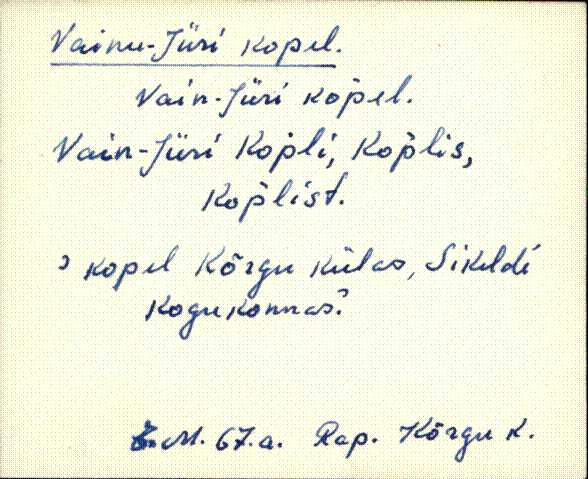 Vainu-Jüri kopel.
Vain-Jüri kop̀el.
Vain-Jüri Kop̀li, Kop̀lis,
Kop̀list.
kopel Kõrgu külas, Sikeldi
kogukonnas?
M. 67.a. Rap. Kõrgu k.